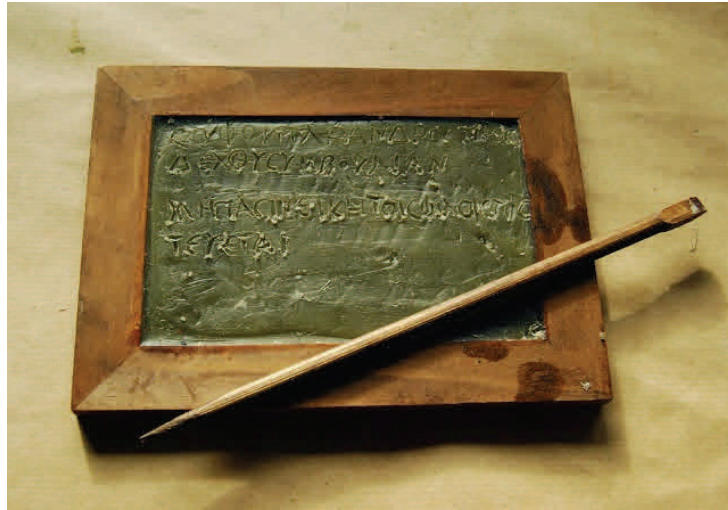 ϹΟΦΟΥΠΑΡΑΝΔΡΟϹΠΡΟϹ
ΔΕΧΟΥϹΥΜΒΟΥΛΙΑΝ
ΜΗΠΑϹΙΝΕΙΚΗΤΟΙϹΦΙΛΟΙϹΠΙϹ
ΤΕΥΕΤΑΙ